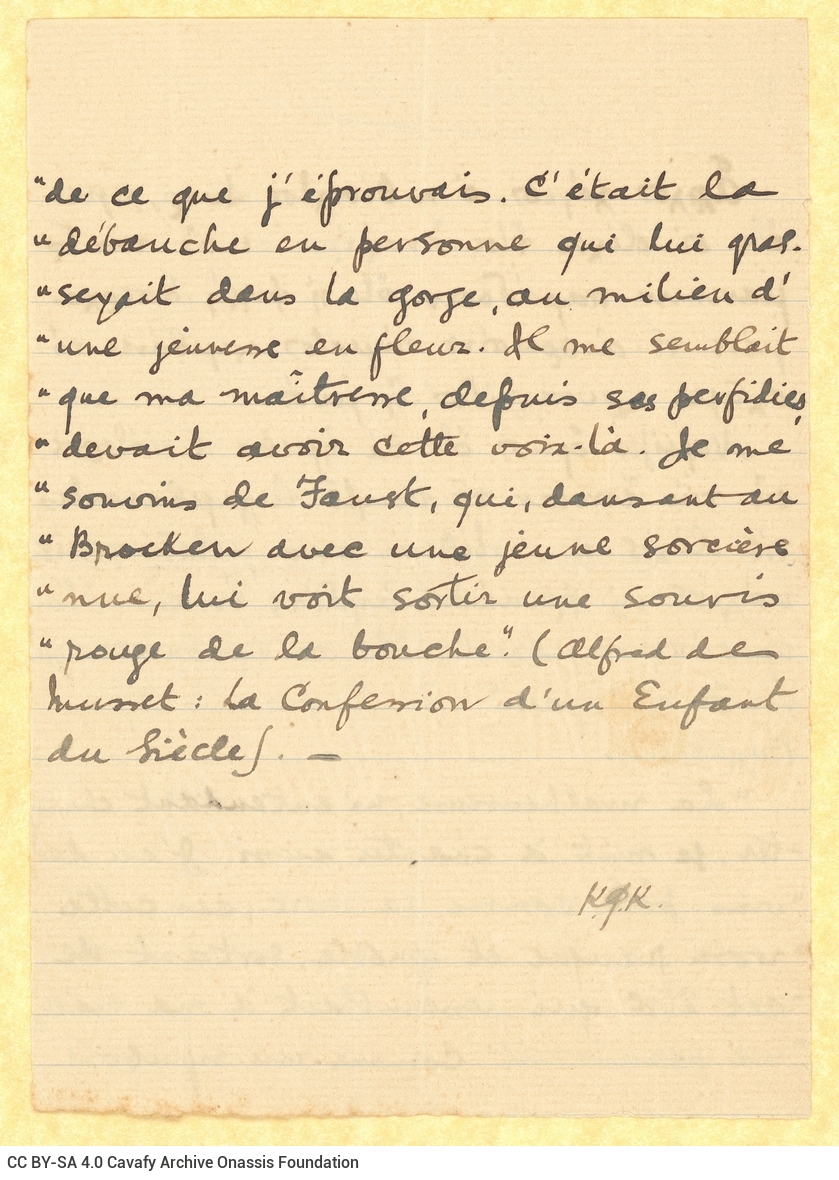 "de ce que j'éprouvais. C'était la
"débauche en personne qui lui gras-
"seyait dans la gorge, au milieu d'
"une jeunesse en fleur. Il me semblait
"que ma maîtresse, depuis ses perfidies,
"devait avoir cette voix-là. Je me
"souvins de Faust, qui, dansant au
"Brocken avec une jeune sorcière
"nue, lui voit sortir une souris
"rouge de la bouche". (Alfred de
Musset : La Confession d'un Enfant
du Siècle). —
Κ.Φ.Κ.
CC BY-SA 4.0 Cavafy Archive Onassis Foundation